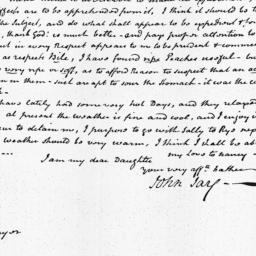 ffects are to be apprehended from it, I think it should be to
the Subject, and do what shall appear to be expedient &
thank God! is much better — and pays proper attention to
but in every Respect appears to me to be prudent &
as respects Bile, I have found ripe Peaches useful — but
very ripe & soft, as to afford Reason to suspect that an
in them — such are apt to sour the Stomach — it was the
have lately had some very hot Days, and they relaxed
at present the weather is fine and cool, and I enjoy it
to detain me, I purpose to go with Sally to Rye
weather should be very warm, I think I shall be
my Love to nancy —
I am my dear Daughter
Your very afft. father
John Jay —